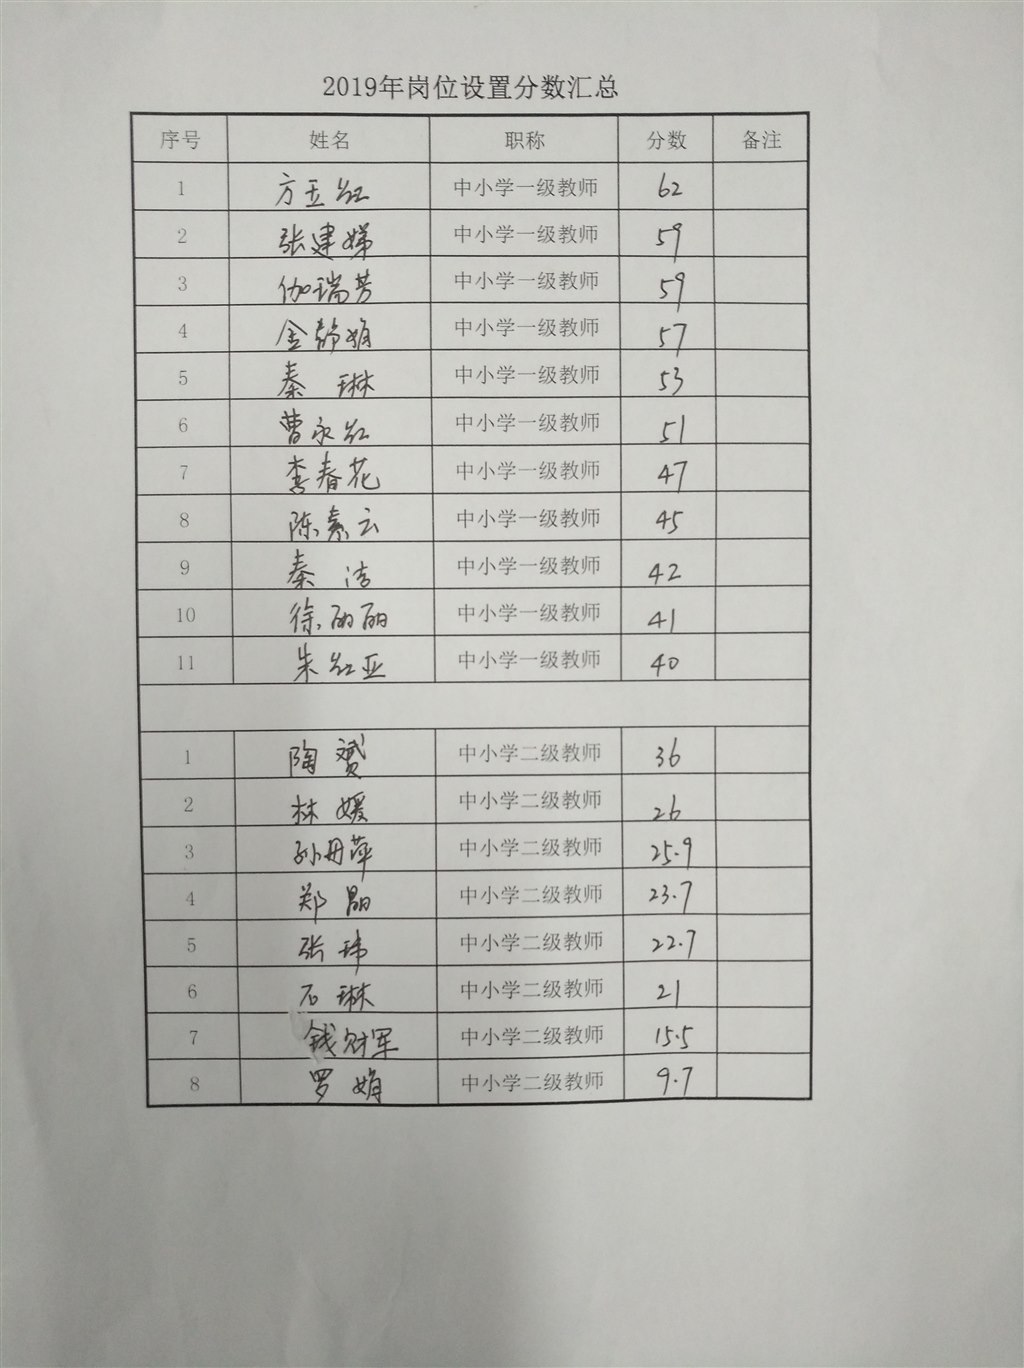 2019年岗位设置分数汇总
序号 姓名 职称 分数 备注
1 方玉红 中小学一级教师 62
2 张建娣 中小学一级教师 59
3 伽瑞芳 中小学一级教师 59
4 金静娟 中小学一级教师 57
5 秦琳 中小学一级教师 53
6 曹永红 中小学一级教师 51
7 李春花 中小学一级教师 47
8 陈素云 中小学一级教师 45
9 秦洁 中小学一级教师 42
10 徐丽丽 中小学一级教师 41
11 朱红亚 中小学一级教师 40
1 陶赟 中小学二级教师 36
2 林媛 中小学二级教师 26
3 孙丹萍 中小学二级教师 25.9
4 郑晶 中小学二级教师 23.7
5 张玮 中小学二级教师 22.7
6 石琳 中小学二级教师 21
7 钱财军 中小学二级教师 15.5
8 罗娟 中小学二级教师 9.7